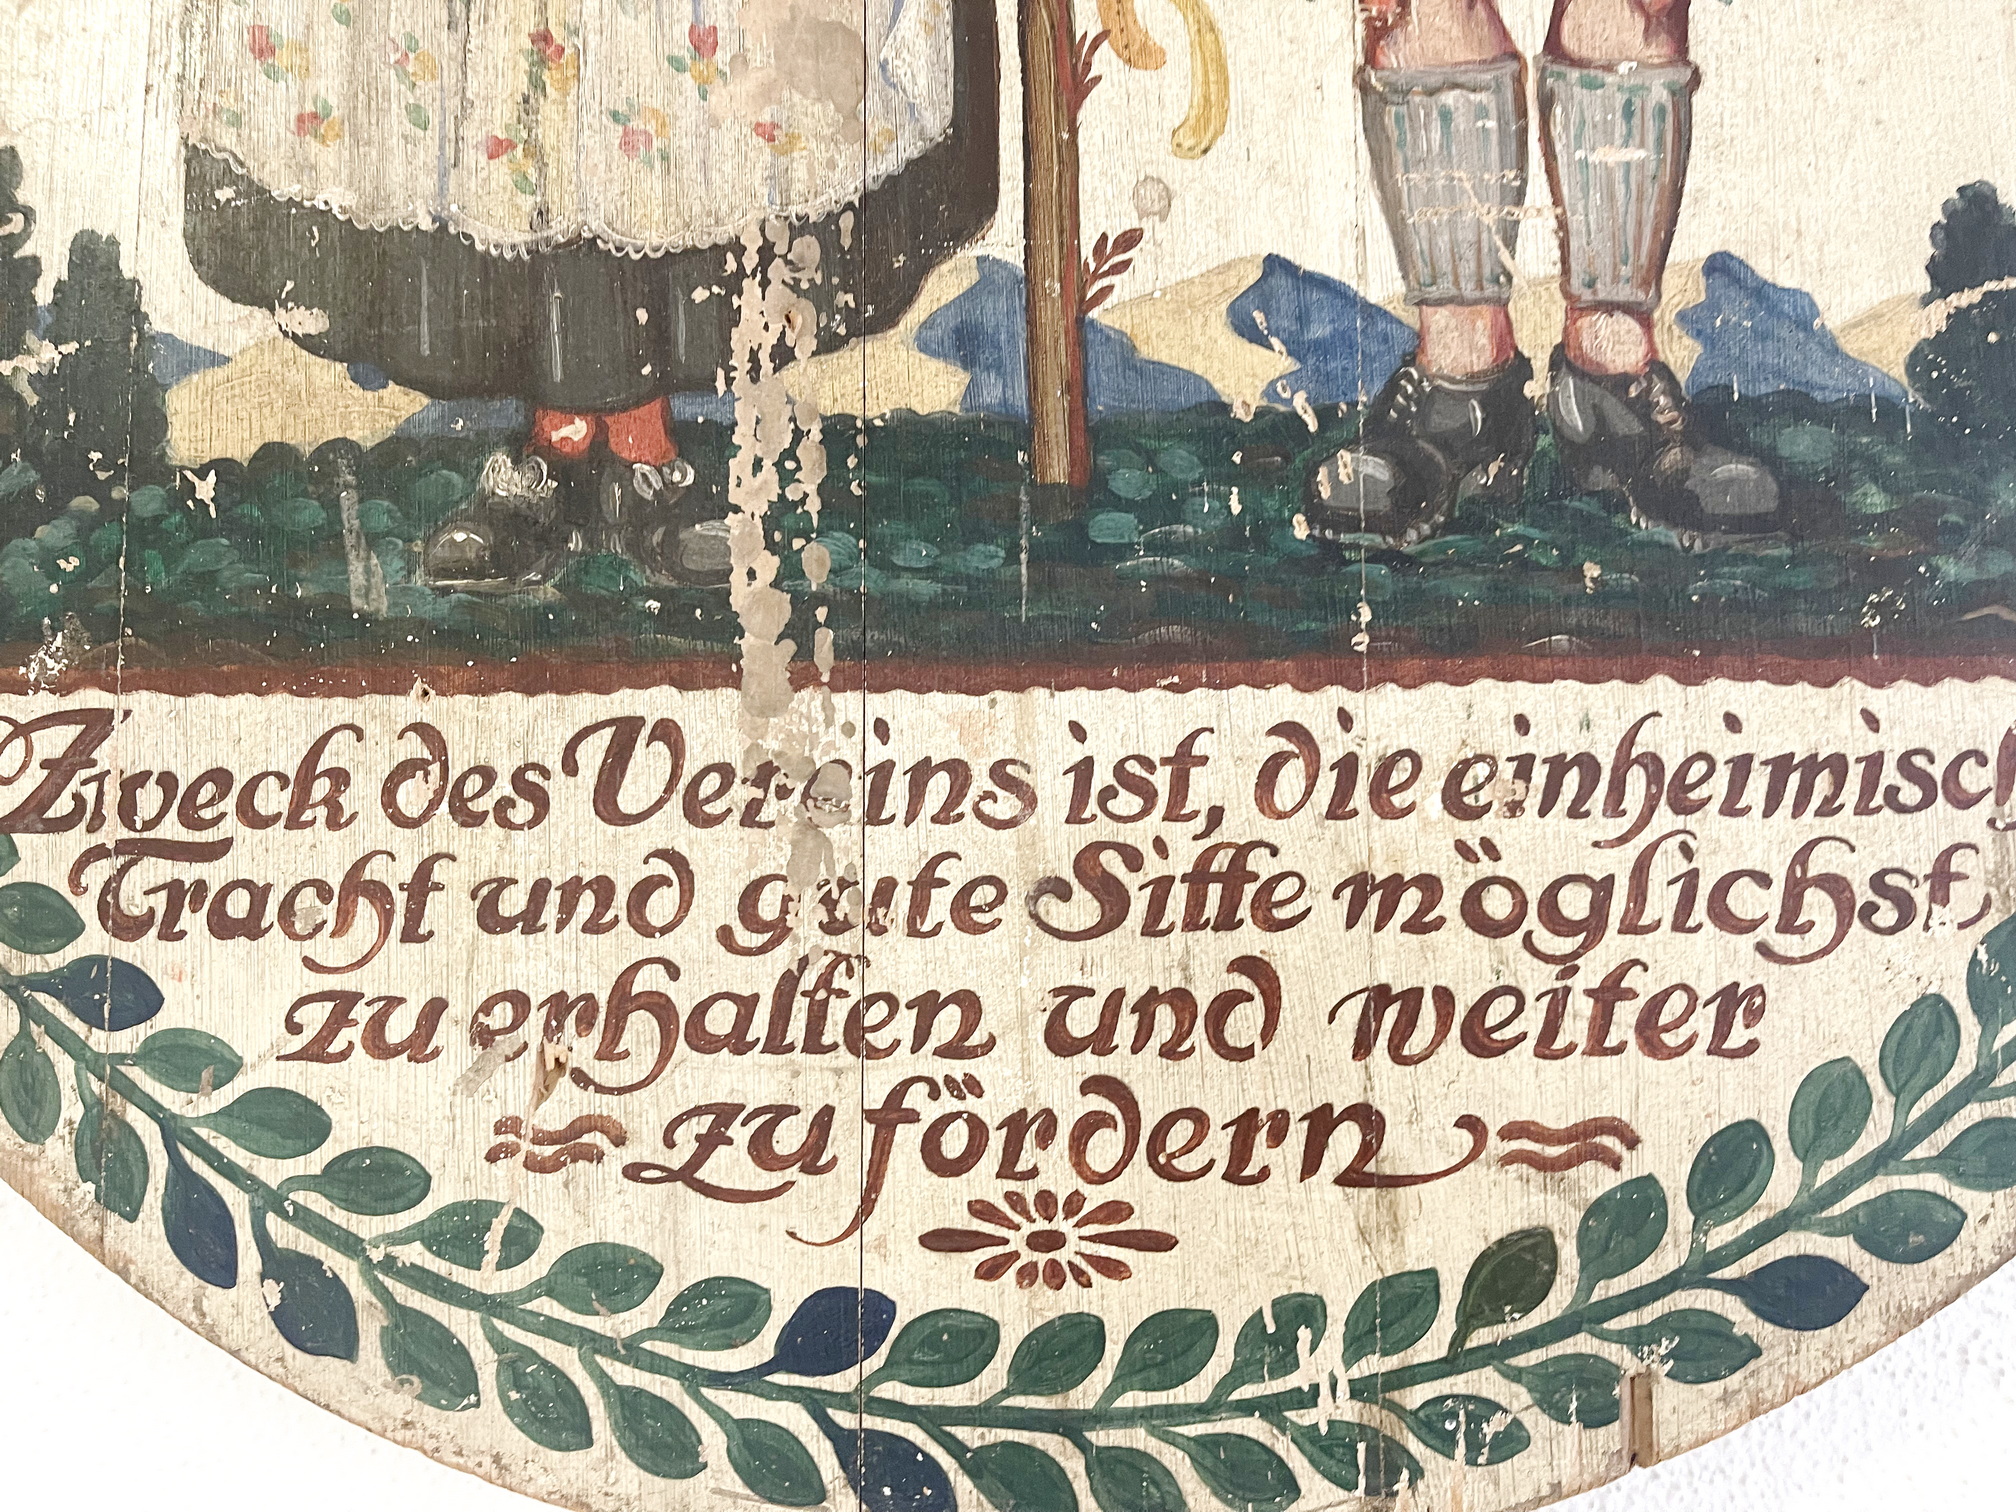 Zweck des Vereins ist, die einheimisch
Tracht und gute Sitte möglichst
zu erhalten und weiter
zu fördern